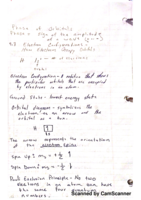 Phase of orbitals
Phase = sign of the amplitude
of a wave (+ or -)
4.3 Electron Configurations:
How Electrons Occupy Orbitals
H 1s¹ ← # of electrons
Electron Configuration = notation that shows
the particular orbitals that are occupied
by electrons in an atom.
Ground State = lowest energy state
Orbital diagram = symbolizes the
electron as an arrow and the
orbital as a box.
H 1
The arrow represents the orientation
of the electron spin.
Spin Up 1 ms = + ½
Spin Down ms = - ½
Pauli Exclusion Principle = No two
electrons in an atom can have
the same four quantum
numbers.
Scanned by CamScanner